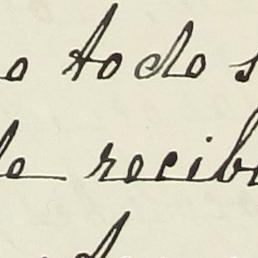 o todo s
le recib
d